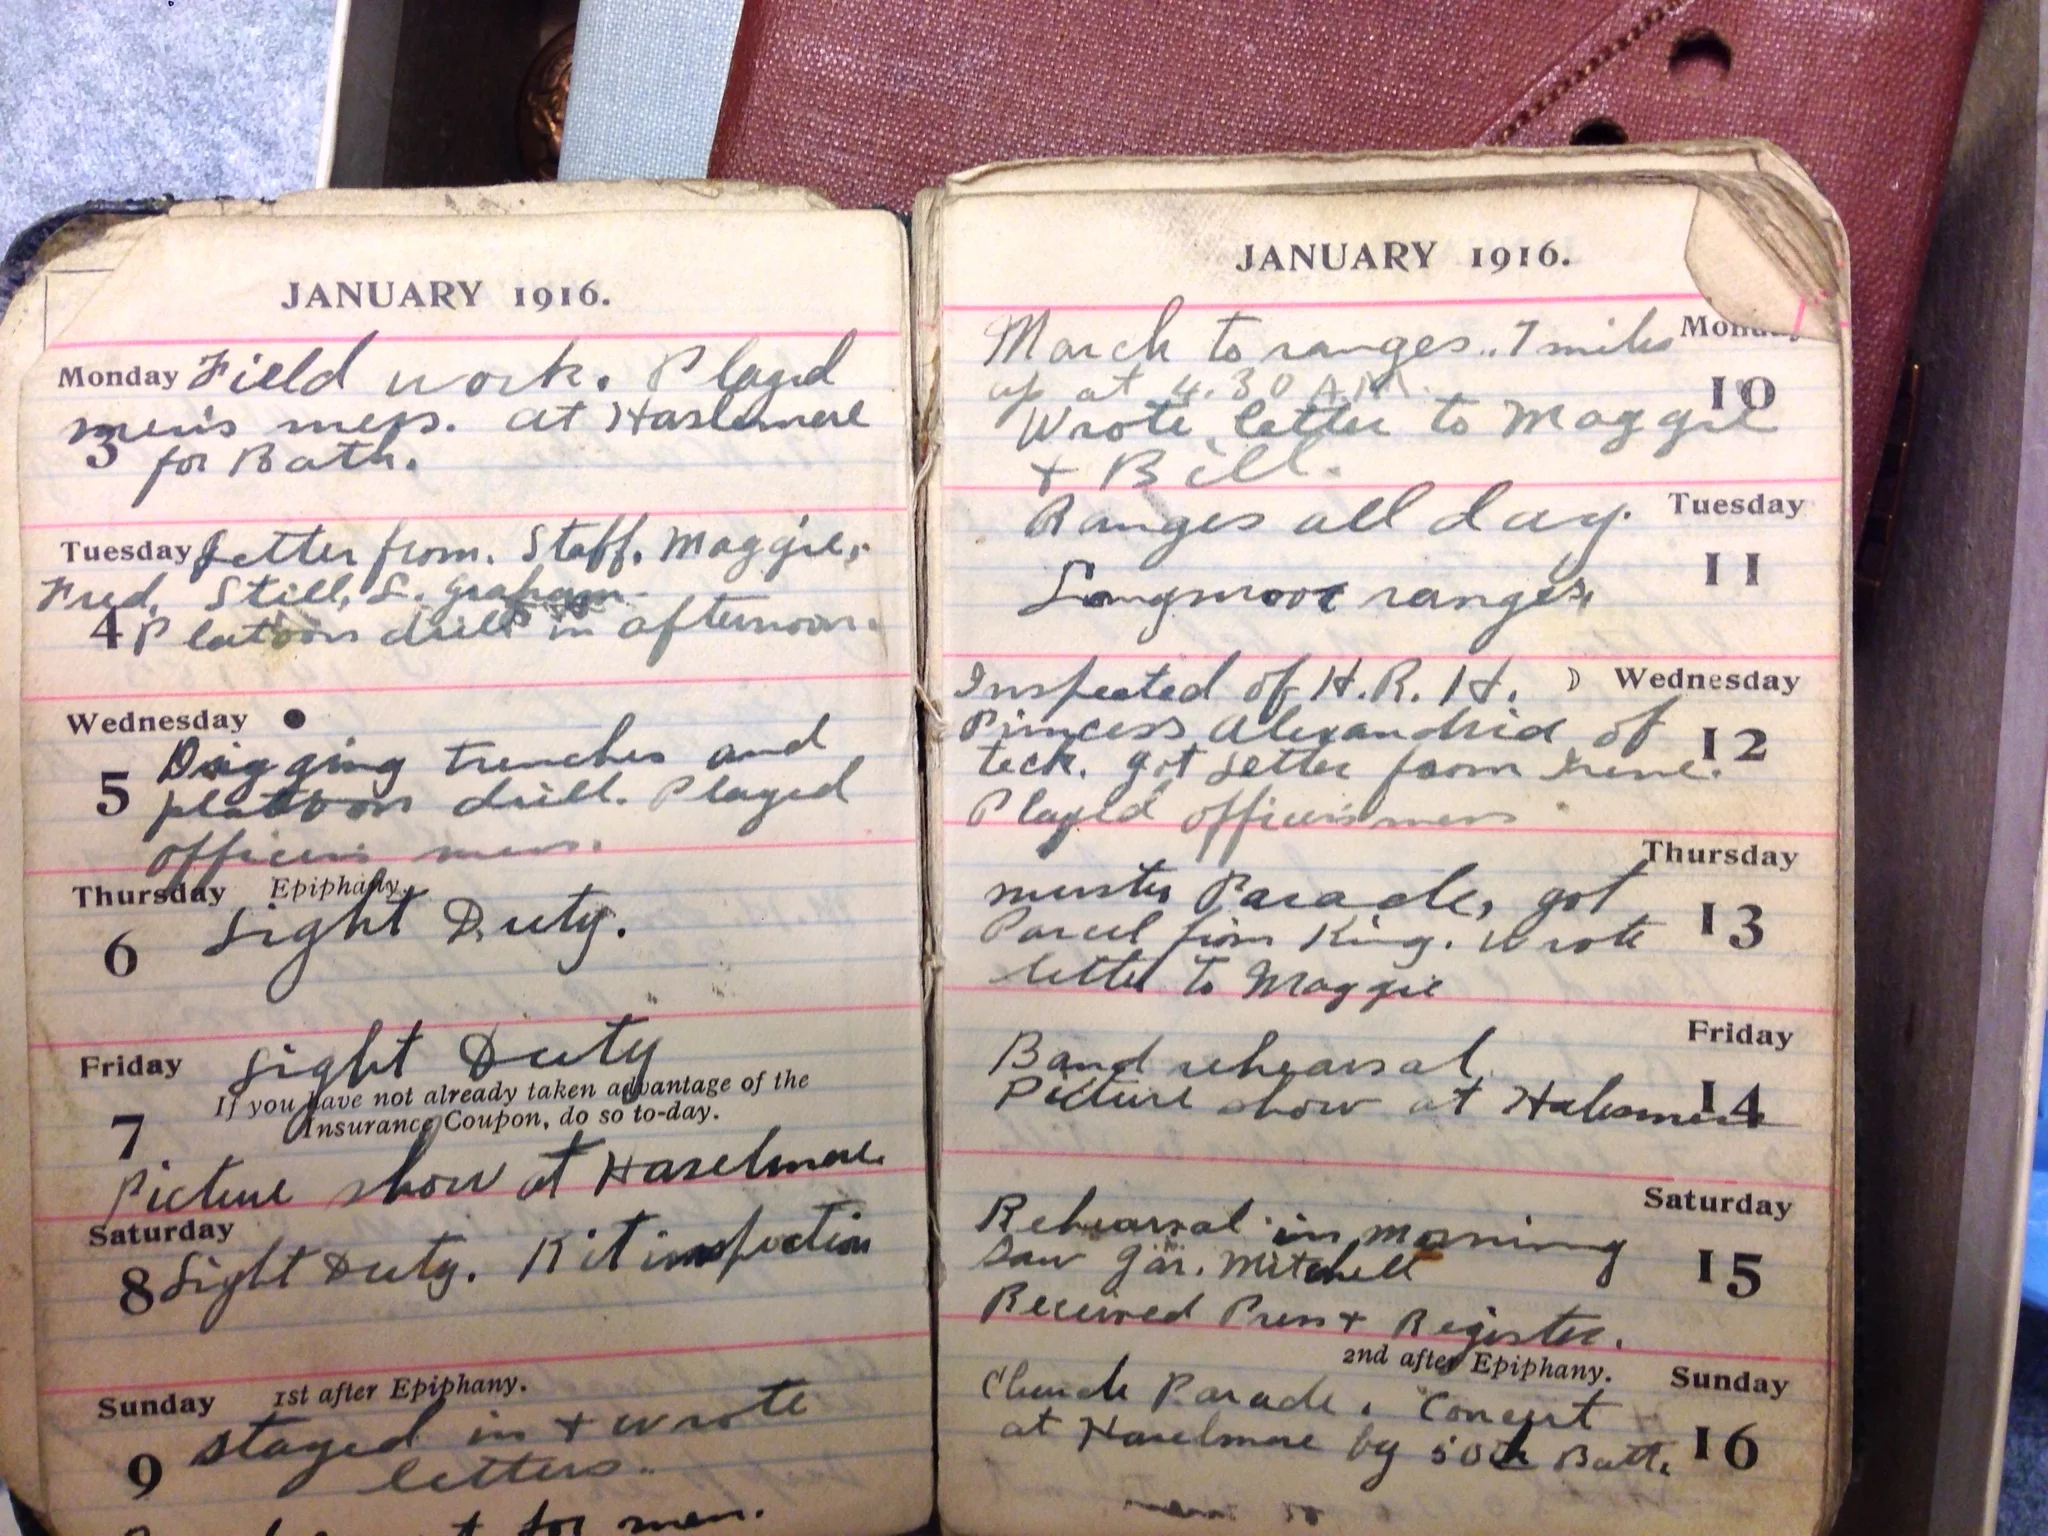 JANUARY 1916.
Monday Field work. Played
men's mess. at Haslemere
3 for Bath.
Tuesday Letter from. Staff, Maggie,
Fred, Still, S. Graham.
4 Platoon drill in afternoon.
Wednesday
Digging trenches and
5 platoon drill. Played
officer's mess.
Thursday Epiphany.
Light Duty.
6
Friday Light Duty
If you have not already taken advantage of the
Insurance Coupon, do so to-day.
7
Picture show at Haselmere.
Saturday
8 Light Duty. Kit inspection
Sunday 1st after Epiphany.
stayed in + wrote
9 letters.
for men.
JANUARY 1916.
March to ranges.. 7 miles Monday
up at 4.30 A.M. 10
Wrote letter to Maggie
+ Bill.
Ranges all day. Tuesday
11
Longmoor ranges.
Inspected of H.R.H. Wednesday
Princess Alexandria of 12
teck. got Letter from Irene.
Played officer's mess
Thursday
muster Parade, got
Parcel from King. Wrote 13
letter to Maggie
Friday
Band rehearsal
Picture show at Halesmere 14
Saturday
Rehearsal in morning
Saw Gar. Mitchell 15
Received Press + Register.
2nd after Epiphany. Sunday
Church Parade. Concert
at Haselmere by 50th Batt. 16